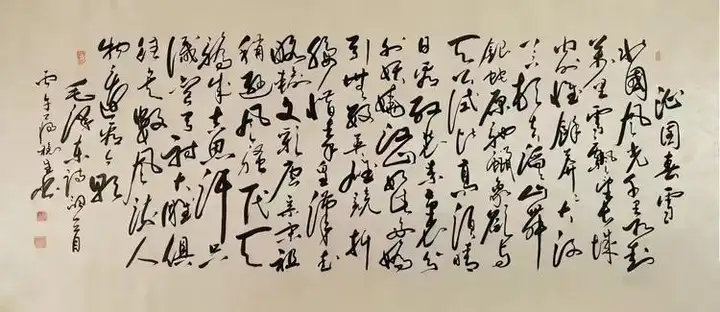 沁园春雪
北國风光千里冰封
万里雪飘望长城
内外惟馀莽莽大河
上下顿失滔滔山舞
银蛇原驰蠟象欲与
天公试比高须晴
日看红装素裹分
外妖娆江山如此多娇
引无数英雄竞折
腰惜秦皇漢武
略输文彩唐宗宋祖
稍逊风骚一代天
骄成吉思汗只
識弯弓射大雕俱
往矣数风流人
物还看今朝
毛泽东诗词一首
丙午